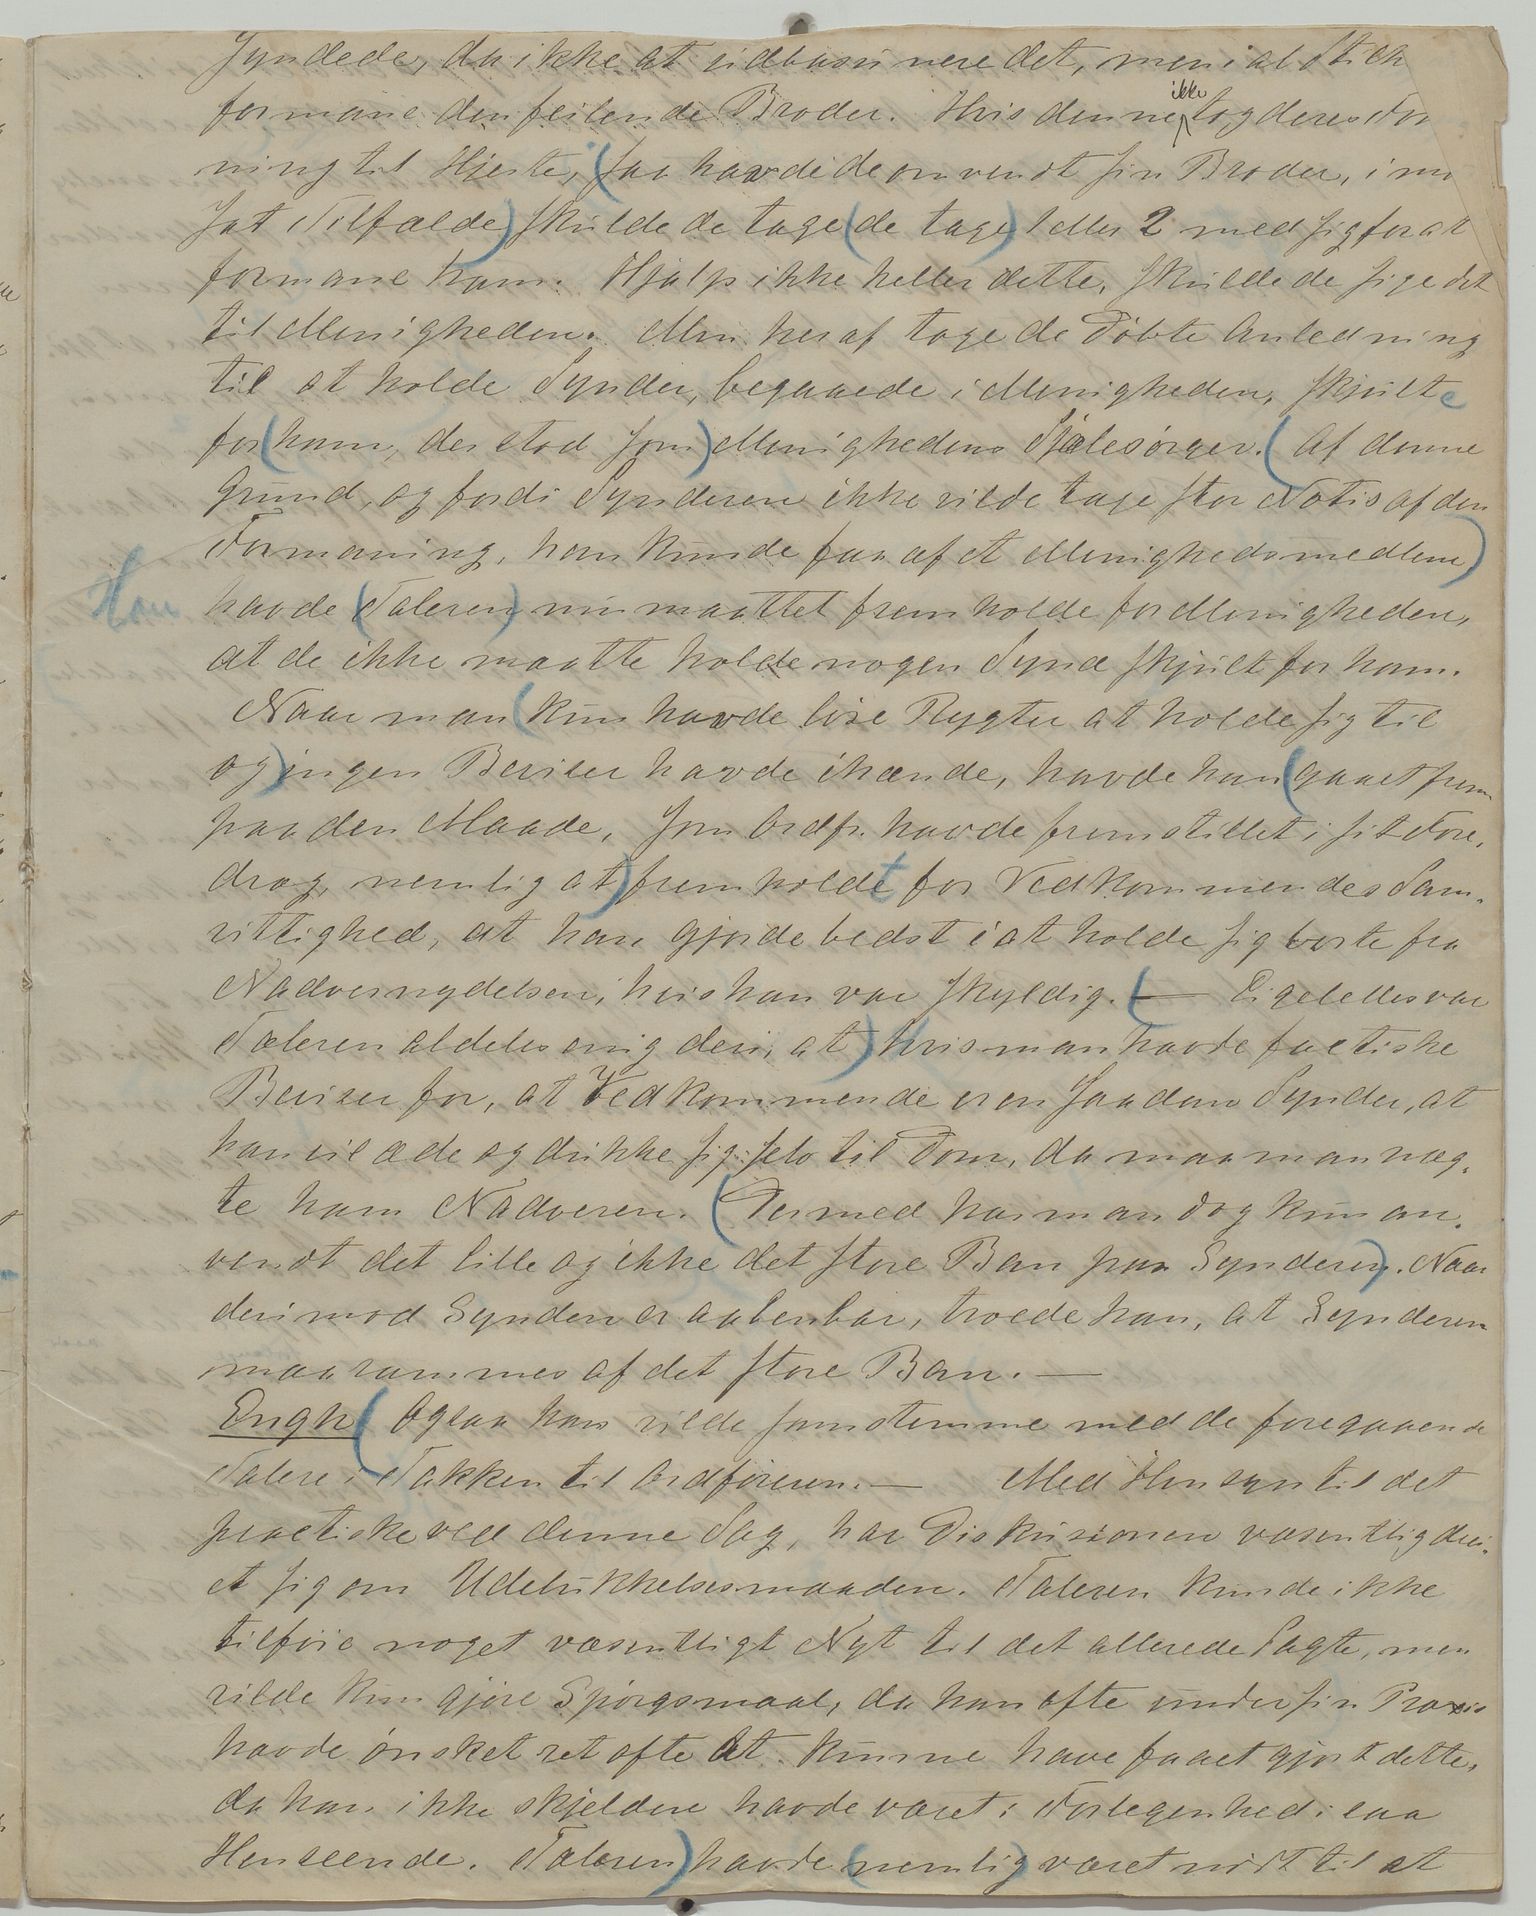 syndede, da ikke at udbasunere det, men i al Stilh
formane den feilende Broder. Hvis denne ikke tog deres For
ning til Hjerte, (saa havde de omvendt sin Broder, i mo
sat Tilfælde) skulde de tage (de tage) 1 eller 2 med sig for at
formane ham. Hjalp ikke heller dette, skulde de sige det
til Menigheden. Men heraf tage de Døbte Anledning
til at holde Synder, begaaede i Menigheden, skjulte
for (ham, der stod som) Menighedens Sjælesørger. (Af denne
Grund, og fordi Synderen ikke vilde tage stor Notis af den
Formaning, han kunde faa af et Menighedsmedlem)
Han havde (Taleren) nu maattet fremholde for Menigheden,
at de ikke maatte holde nogen Synd skjult for ham.
Naar man (kun havde løse Rygter at holde sig til
og) ingen Beviser havde ihænde, havde han (gaaet frem
paa den Maade, som Ordf. havde fremstillet i sit Fore-
drag, nemlig at) fremholdet for Vedkommendes Sam-
vittighed, at han gjorde bedst i at holde sig borte fra
Nadvernydelsen, hvis han var skyldig. (— Ligeledes var
Taleren aldeles enig deri, at) hvis man havde factiske
Beviser for, at Vedkommende er en saadan Synder, at
han vil æde og drikke sig selv til Dom, da maa man næg-
te ham Nadveren. (Dermed har man dog kun an-
vendt det lille og ikke det store Ban paa Synderen). Naar
derimod Synden er aabenbar, troede han, at Synderen
maa rammes af det store Ban. —
Engh (Ogsaa han vilde samstemme med de foregaaende
Talere i Takken til Ordføreren. — Med Hensyn til det
practiske ved denne Sag, har Diskusionen væsentlig drei-
et sig om Udelukkelsesmaaden. Taleren kunde ikke
tilføie noget væsentligt Nyt til det allerede Sagte, men
vilde kun gjøre Spørgsmaal, da han ofte under sin Praxis
havde ønsket ret ofte at kunne have faaet gjort dette,
da han ikke skjelden havde været i Forlegenhed i saa
Henseende. Taleren) havde (nemlig) været nødt til at